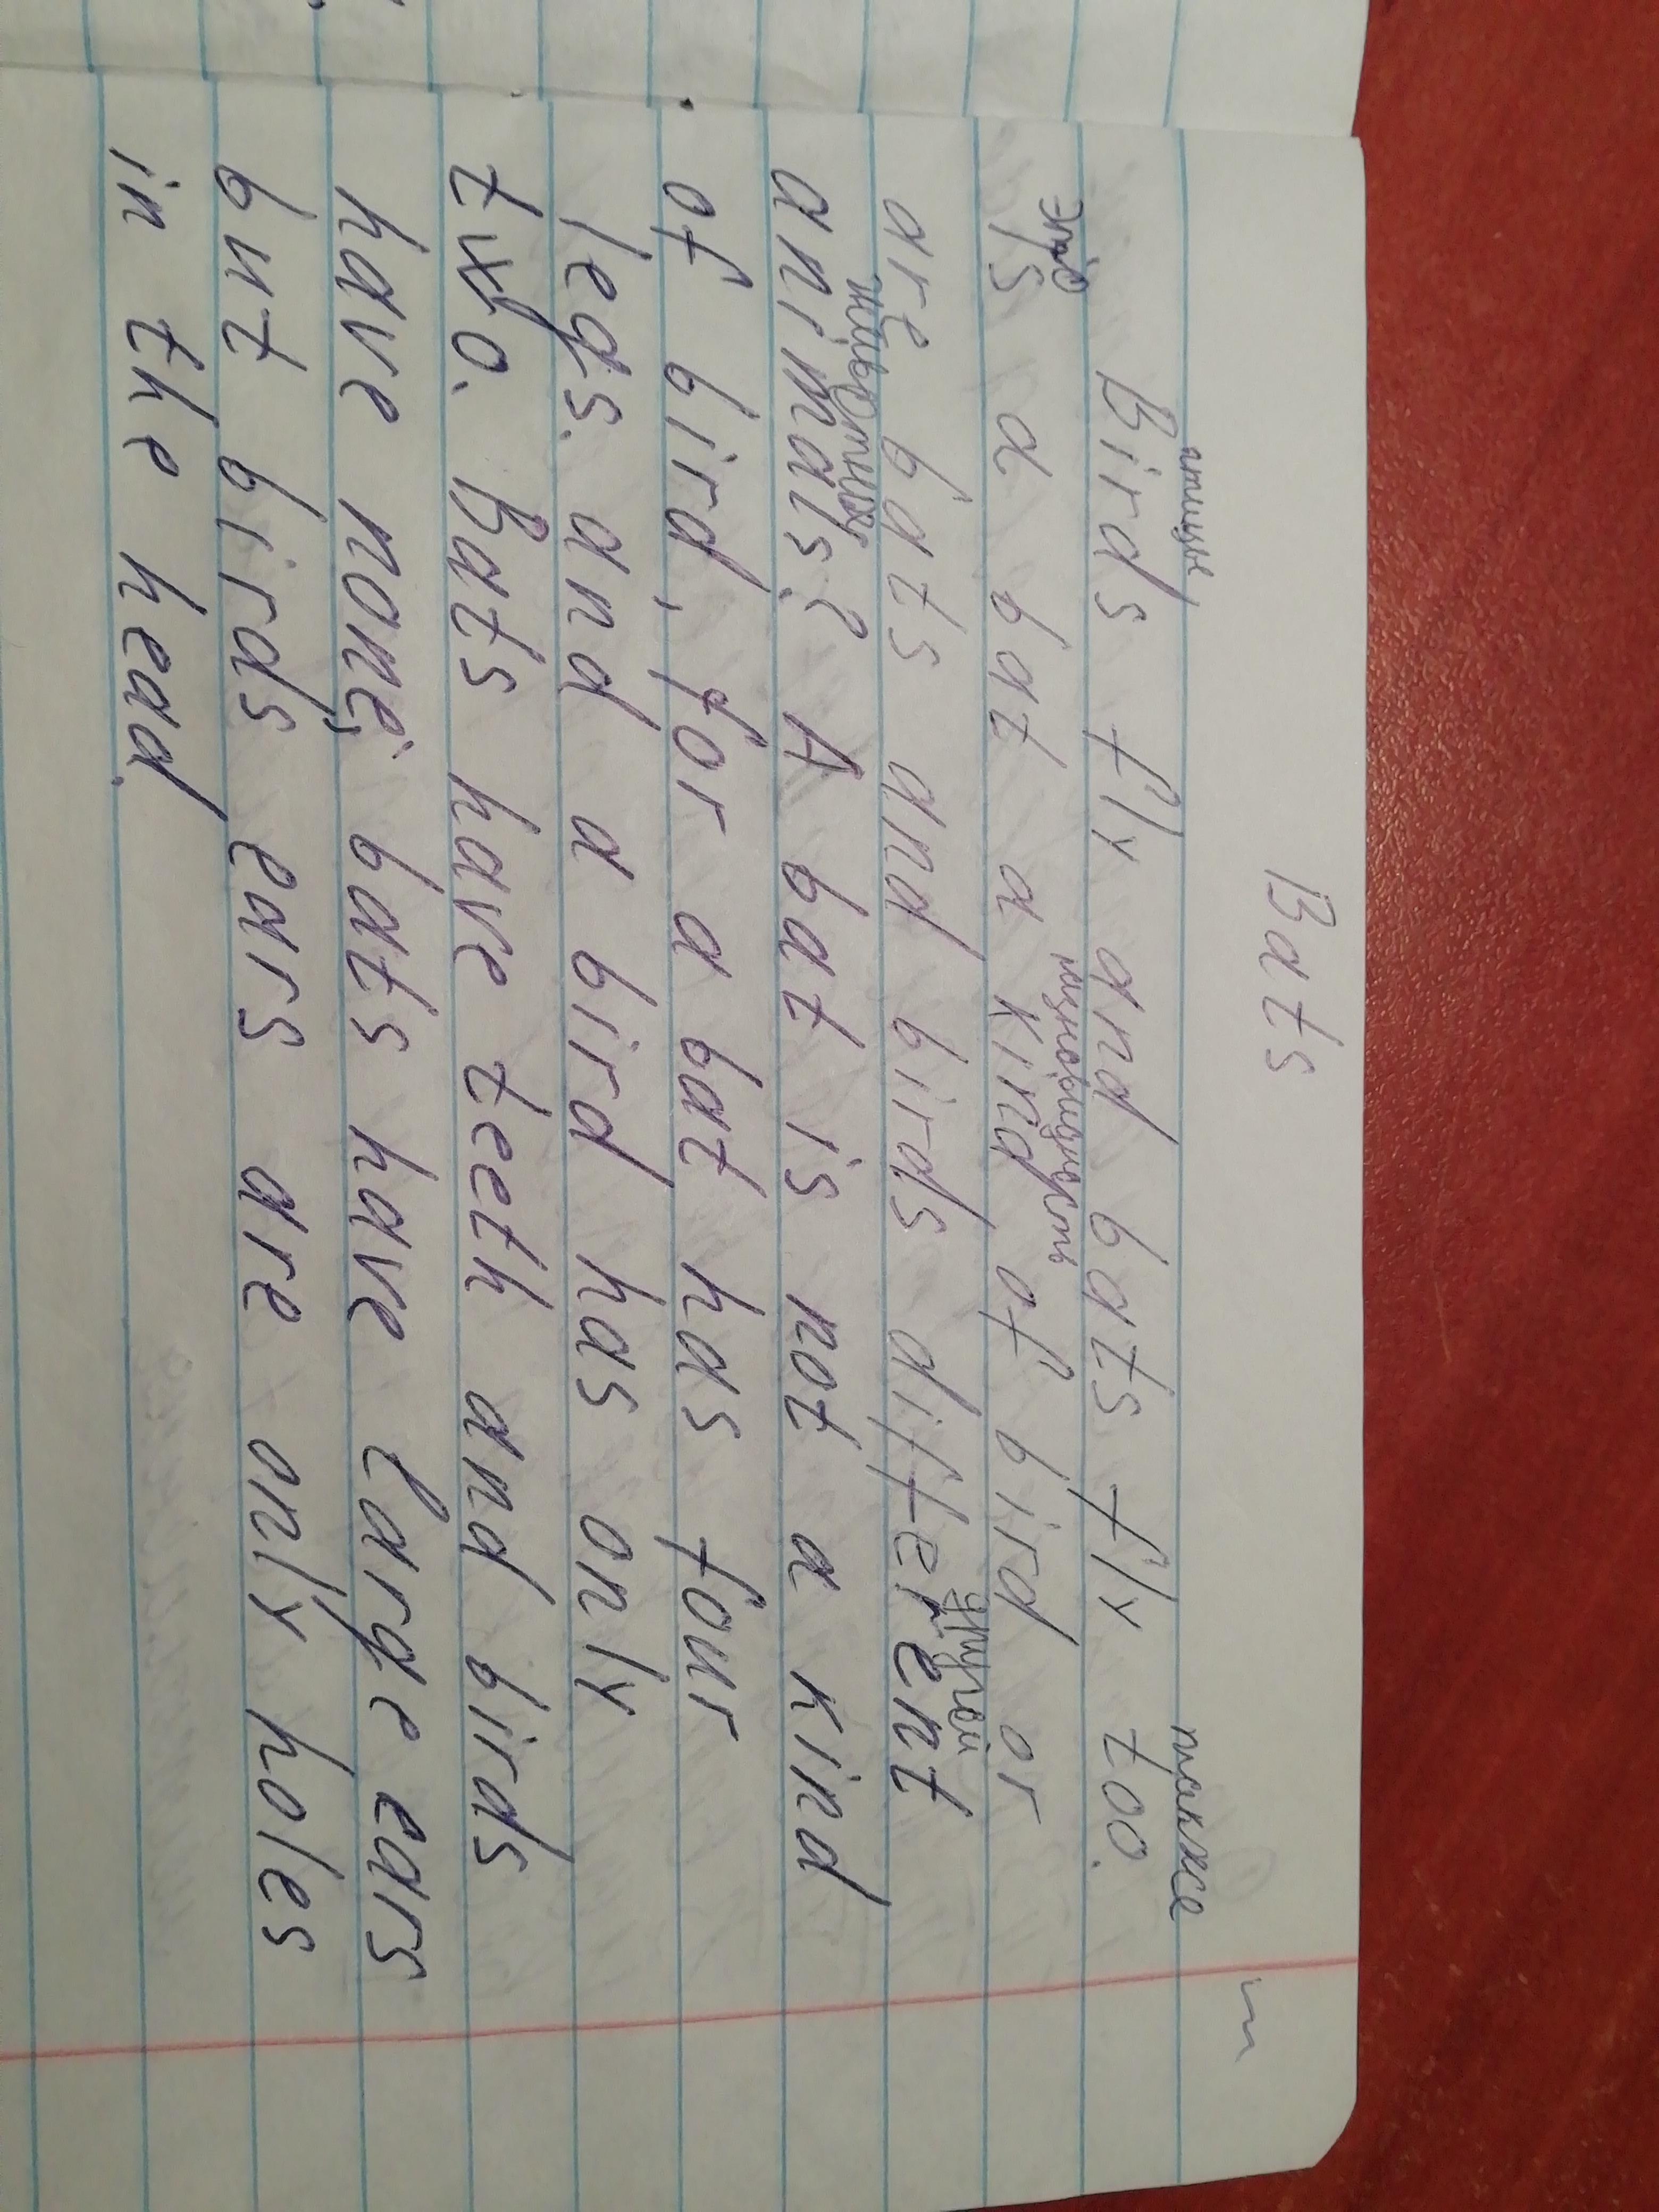 Bats
птицы также
Birds fly and bats fly too.
это разновидность
Is a bat a kind of bird or
другой
are bats and birds different
животных
animals? A bat is not a kind
of bird, for a bat has four
legs. and a bird has only
two. Bats have teeth and birds
have none, bats have large ears
but birds ears are only holes
in the head.